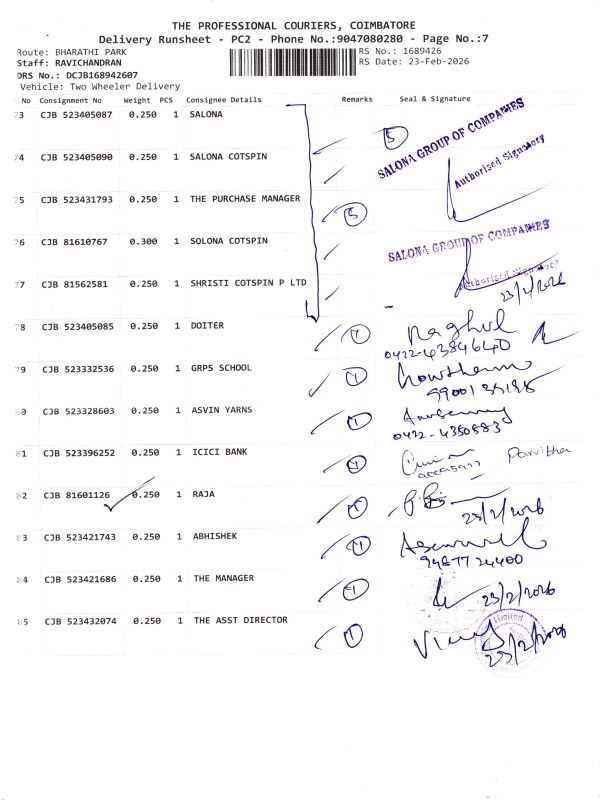 THE PROFESSIONAL COURIERS, COIMBATORE
Delivery Runsheet - PC2 - Phone No.:9047080280 - Page No.:7
Route: BHARATHI PARK
RS No.: 1689426
Staff: RAVICHANDRAN
RS Date: 23-Feb-2026
DRS No.: DCJB168942607
Vehicle: Two Wheeler Delivery
No Consignment No Weight PCS Consignee Details Remarks Seal & Signature
73 CJB 523405087 0.250 1 SALONA 5
SALONA GROUP OF COMPANIES
Authorised Signatory
74 CJB 523405090 0.250 1 SALONA COTSPIN
75 CJB 523431793 0.250 1 THE PURCHASE MANAGER 5
76 CJB 81610767 0.300 1 SOLONA COTSPIN
SALONA GROUP OF COMPANIES
Authorised Signatory
77 CJB 81562581 0.250 1 SHRISTI COTSPIN P LTD
23/2/2026
78 CJB 523405085 0.250 1 DOITER 1 Raghul
0422-4384640
79 CJB 523332536 0.250 1 GRPS SCHOOL 1
80 CJB 523328603 0.250 1 ASVIN YARNS 1
81 CJB 523396252 0.250 1 ICICI BANK 1
82 CJB 81601126 0.250 1 RAJA 1
23/2/2026
83 CJB 523421743 0.250 1 ABHISHEK 1
9487724400
84 CJB 523421686 0.250 1 THE MANAGER 1
23/2/2026
85 CJB 523432074 0.250 1 THE ASST DIRECTOR 1
Limited
23/2/2026